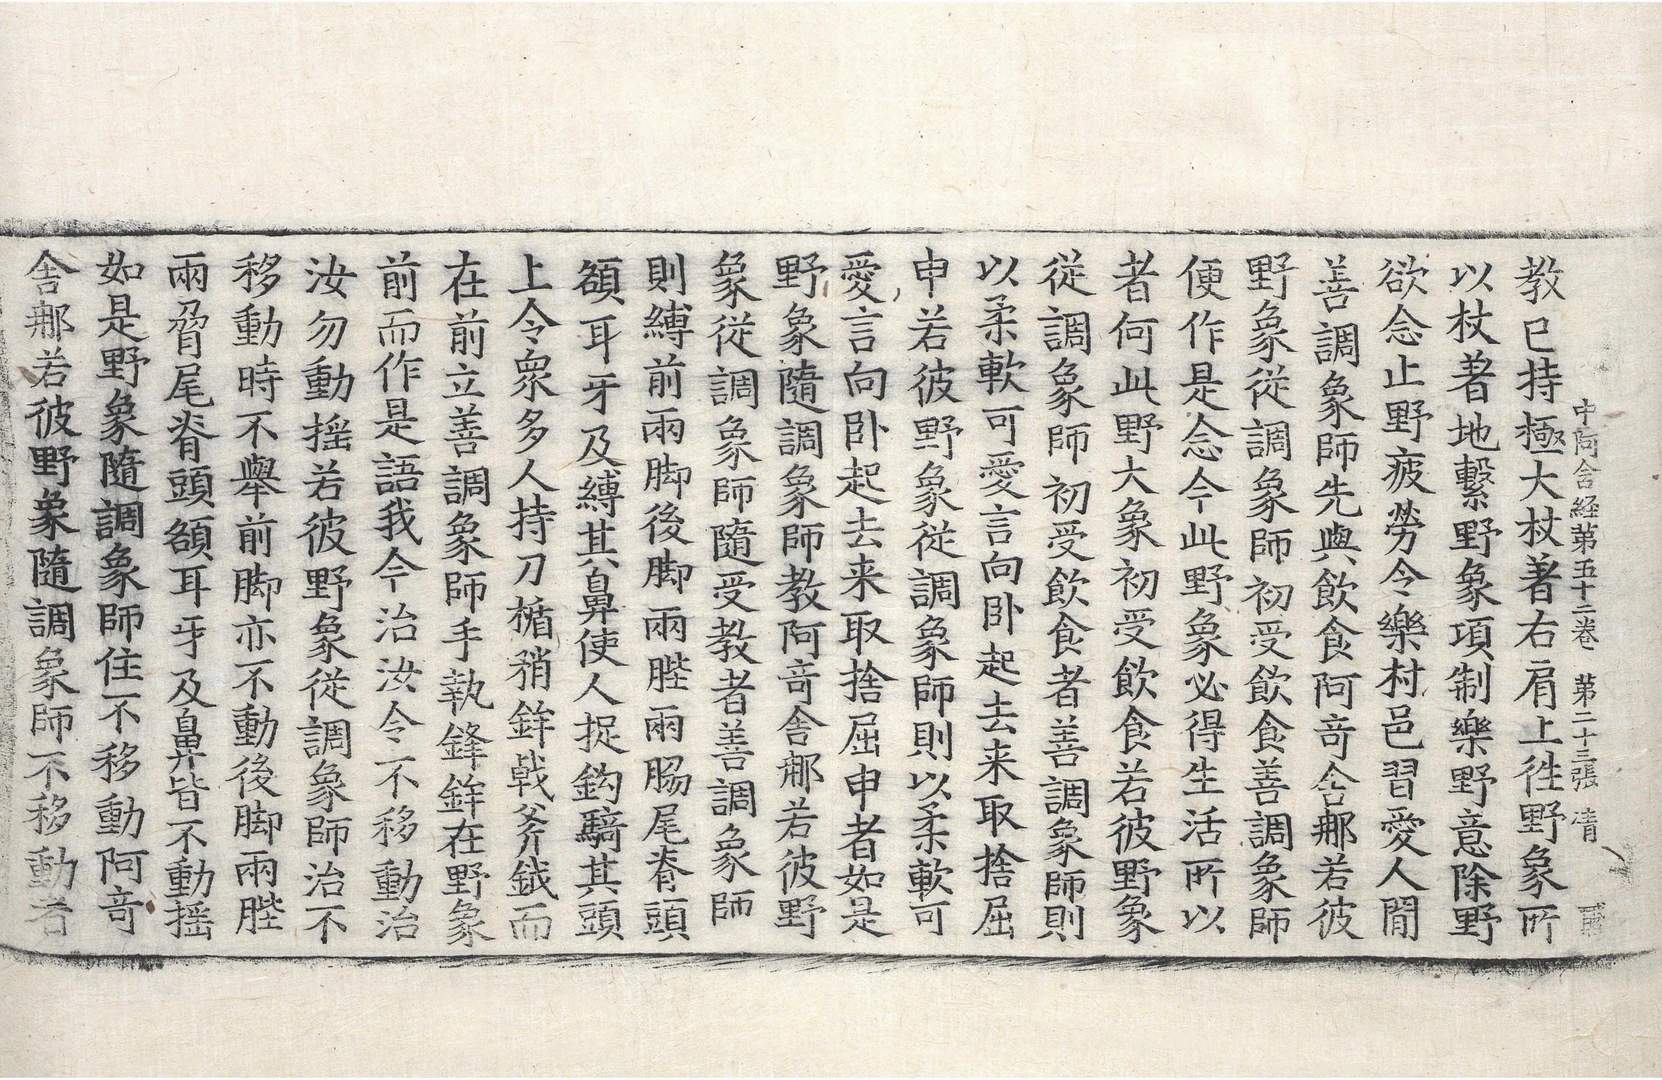 中阿含経第五十二卷 第二十三張 清
教已持極大杖著右肩上徃野象所
以杖著地繫野象項制樂野意除野
欲念止野疲勞令樂村邑習愛人閒
善調象師先與飲食阿竒舍那若彼
野象從調象師初受飲食善調象師
便作是念今此野象必得生活所以
者何此野大象初受飲食若彼野象
從調象師初受飲食者善調象師則
以柔軟可愛言向卧起去来取捨屈
申若彼野象從調象師則以柔軟可
愛言向卧起去来取捨屈申者如是
野象隨調象師教阿竒舍那若彼野
象從調象師隨受教者善調象師
則縛前兩脚後脚兩䏶兩膓尾脊頭
額耳牙及縛其鼻使人捉鈎騎其頭
上令衆多人持刀楯矟鉾戟斧鉞而
在前立善調象師手執鋒鉾在野象
前而作是語我今治汝令不移動治
汝勿動揺若彼野象從調象師治不
移動時不舉前脚亦不動後脚兩䏶
兩脅尾脊頭額耳牙及鼻皆不動揺
如是野象隨調象師住不移動阿竒
舍那若彼野象隨調象師不移動者